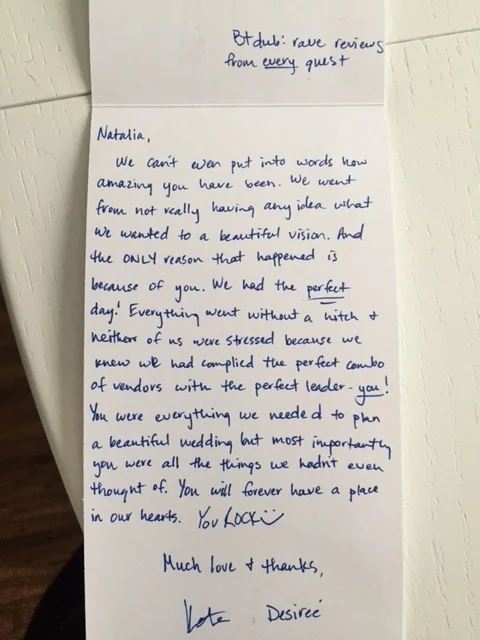 Btdub: rave reviews
from every guest
Natalia,
We can't even put into words how
amazing you have been. We went
from not really having any idea what
we wanted to a beautiful vision. And
the ONLY reason that happened is
because of you. We had the perfect
day! Everything went without a hitch &
neither of us were stressed because we
knew we had complied the perfect combo
of vendors with the perfect leader - you!
You were everything we needed to plan
a beautiful wedding but most importantly
you were all the things we hadn't even
thought of. You will forever have a place
in our hearts. You ROCK
Much love & thanks,
Desireé